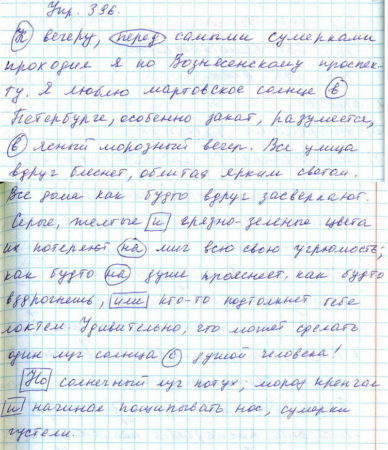 Упр. 396.
К вечеру, перед самыми сумерками
проходил я по Вознесенскому проспек-
ту. Я люблю мартовское солнце в
Петербурге, особенно закат, разумеется,
в ясный морозный вечер. Вся улица
вдруг блеснет, облитая ярким светом.
Все дома как будто вдруг засверкают.
Серые, желтые и грязно-зеленые цвета
их потеряют на миг всю свою угрюмость;
как будто на душе прояснеет, как будто
вздрогнешь, или кто-то подтолкнет тебя
локтем. Удивительно, что может сделать
один луч солнца с душой человека!
Но солнечный луч потух; мороз крепчал
и начинал пощипывать нос, сумерки
густели.